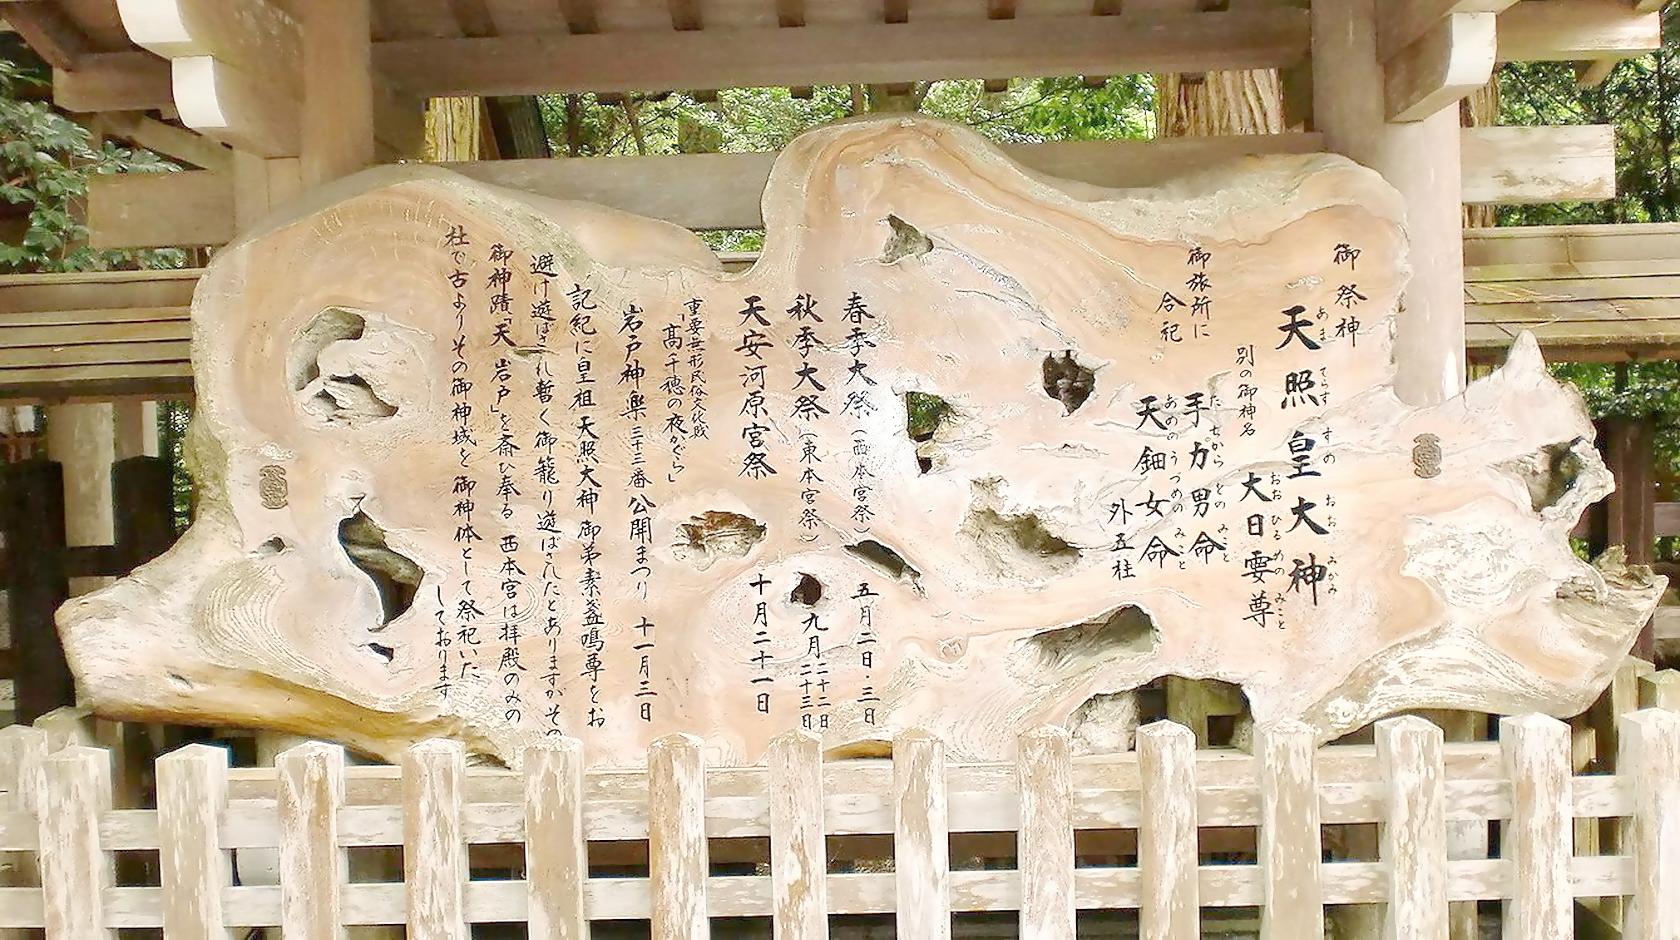 御祭神
天照皇大神
あま てらす すの おお みかみ
別の御神名
大日孁尊
おお ひる めの みこと
御旅所に
合祀
手力男命
た ぢから をの みこと
天鈿女命
あめの うつめの みこと
外五柱
春季大祭（西本宮祭）五月二日・三日
秋季大祭（東本宮祭）九月二十二日
二十三日
天安河原宮祭 十月二十一日
重要無形民俗文化財
「高千穂の夜かぐら」
岩戸神楽三十三番公開まつり 十一月三日
記紀に皇祖天照大神御弟素盞鳴尊をお
避け遊ばされ暫く御籠り遊ばされたとありますがその
御神蹟「天岩戸」を斎ひ奉る 西本宮は拝殿のみの
社で古よりその御神域を御神体として祭祀いた
しております